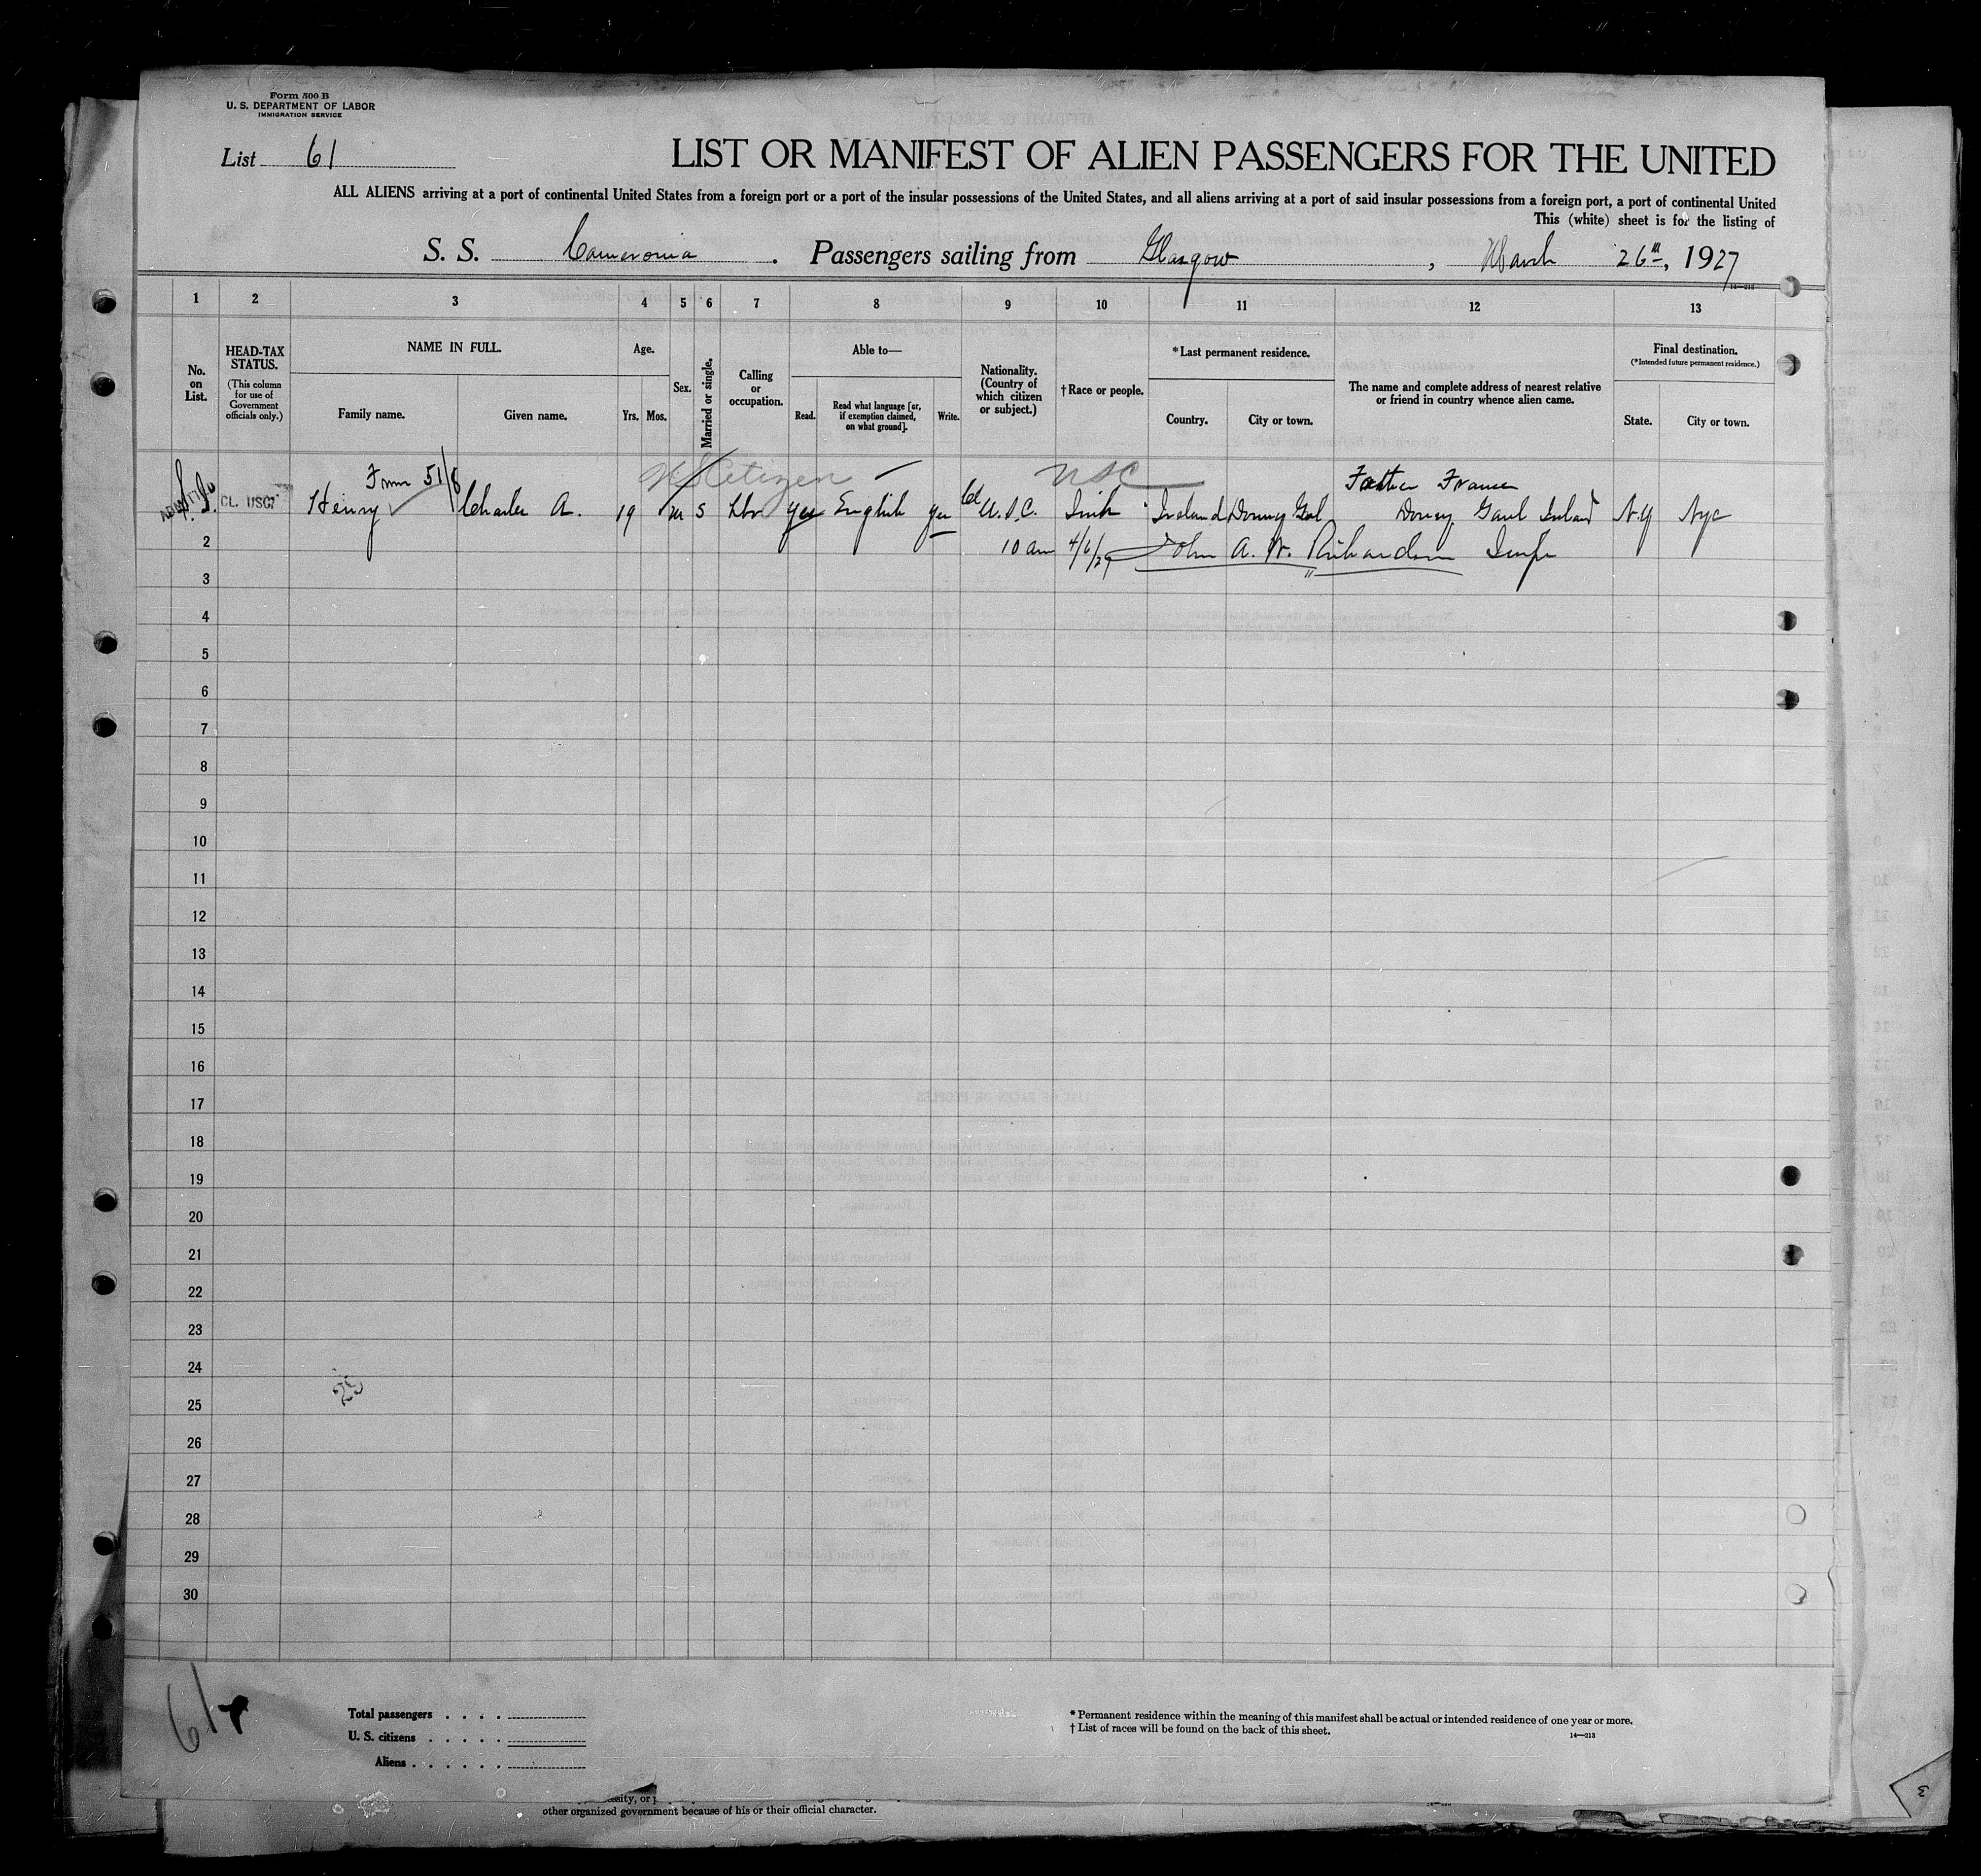 Form 500 B
U. S. DEPARTMENT OF LABOR
IMMIGRATION SERVICE
List 61
LIST OR MANIFEST OF ALIEN PASSENGERS FOR THE UNITED
ALL ALIENS arriving at a port of continental United States from a foreign port or a port of the insular possessions of the United States, and all aliens arriving at a port of said insular possessions from a foreign port, a port of continental United
This (white) sheet is for the listing of
S. S. Cameronia . Passengers sailing from Glasgow , March 26th, 1927
14—213
1 2 3 4 5 6 7 8 9 10 11 12 13
No. on List.
HEAD-TAX STATUS.
(This column for use of Government officials only.)
NAME IN FULL.
Family name.
Given name.
Age.
Yrs. Mos.
Sex.
Married or single.
Calling or occupation.
Able to—
Read.
Read what language [or, if exemption claimed, on what ground].
Write.
Nationality. (Country of which citizen or subject.)
† Race or people.
*Last permanent residence.
Country.
City or town.
The name and complete address of nearest relative or friend in country whence alien came.
Final destination.
(*Intended future permanent residence.)
State.
City or town.
Form 518 US Citizen USC Father Francis
CL. USC Henry Charles A. 19 m S Lbr Yes English Yes U.S.C. Irish Ireland N.Y NYC
2 10 am 4/6/27 John A. W. Richardson Insp
3
4
5
6
7
8
9
10
11
12
13
14
15
16
17
18
19
20
21
22
23
24
25
26
27
28
29
30
61
Total passengers . . . .
U. S. citizens . . . . .
Aliens . . . . . .
* Permanent residence within the meaning of this manifest shall be actual or intended residence of one year or more.
† List of races will be found on the back of this sheet.
14—213
other organized government because of his or their official character.